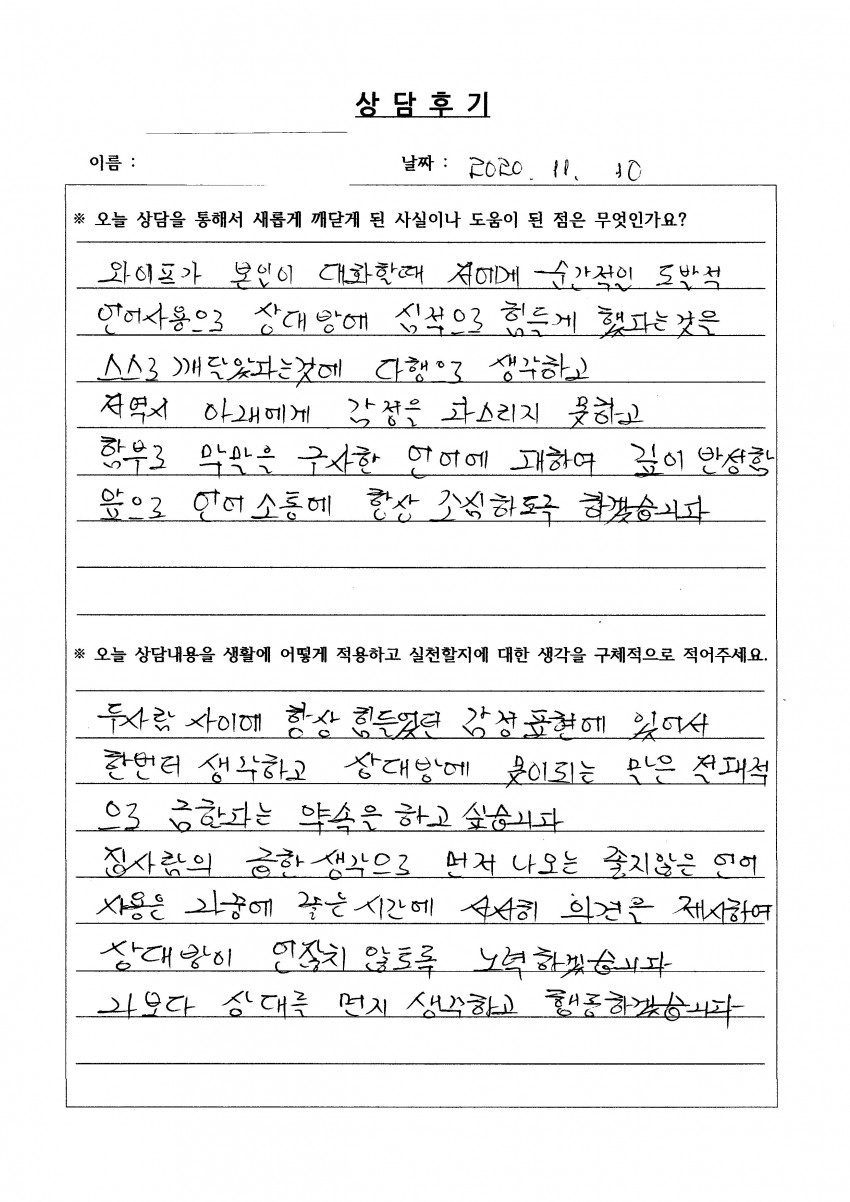 상 담 후 기
이름 : 날짜 : 2020. 11. 10
※ 오늘 상담을 통해서 새롭게 깨닫게 된 사실이나 도움이 된 점은 무엇인가요?
와이프가 본인이 대화할때 저에게 순간적인 도발적
언어사용으로 상대방에 심적으로 힘들게 했다는것을
스스로 깨달았다는것에 다행으로 생각하고
저역시 아래에게 감정을 다스리지 못하고
함부로 막말을 구사한 언어에 대하여 깊이 반성함
앞으로 언어소통에 항상 조심하도록 하겠습니다
※ 오늘 상담내용을 생활에 어떻게 적용하고 실천할지에 대한 생각을 구체적으로 적어주세요.
두사람 사이에 항상 힘들었던 감정표현에 있어서
한번더 생각하고 상대방에 못이되는 말은 절대적
으로 금한다는 약속을 하고 싶습니다
집사람의 급한 생각으로 먼저 나오는 좋지않은 언어
사용은 나중에 서서히 의견을 제시하여
상대방이 언짢치 않토록 노력하겠습니다
나보다 상대를 먼저 생각하고 행동하겠습니다